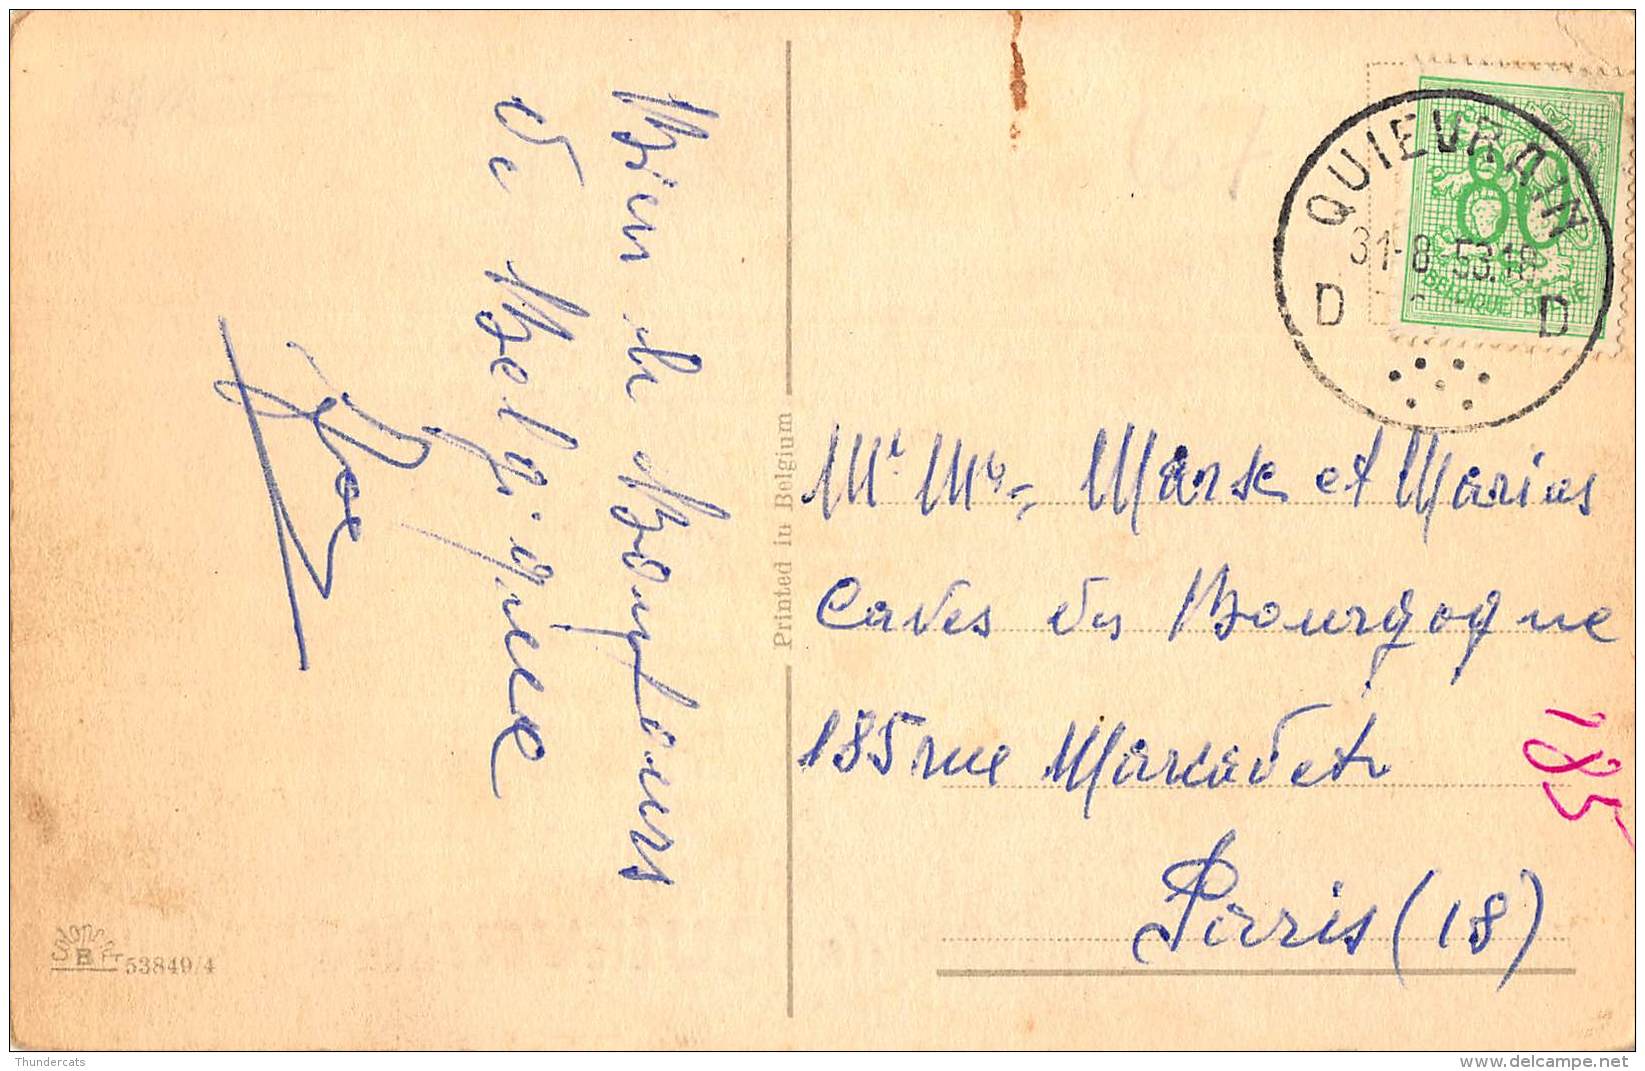 Bien le Bonjours
de Belgique
Printed in Belgium
53849/4
QUIEVRAIN
31-8 53.18
D D
80
BELGIQUE BELGIE
Mr Me Marse et Marius
Caves du Bourgogne
185 rue Marcadet
Paris (18)
185
Thundercats
delcampe.net